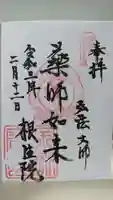 奉拝
弘法大師
薬師如来
令和二年
二月十二日
根生院